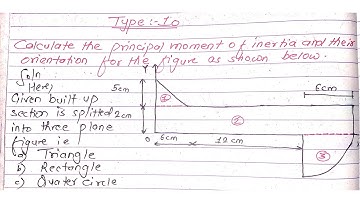 Type:-10
Calculate the principal moment of inertia and their
orientation for the figure as shown below.
Soln
Here,
Given built up
section is splitted
into three plane
figure i.e
a) Triangle
b) Rectangle
c) Quater circle
Y
5cm
2cm
①
②
③
0
6cm
12cm
6cm